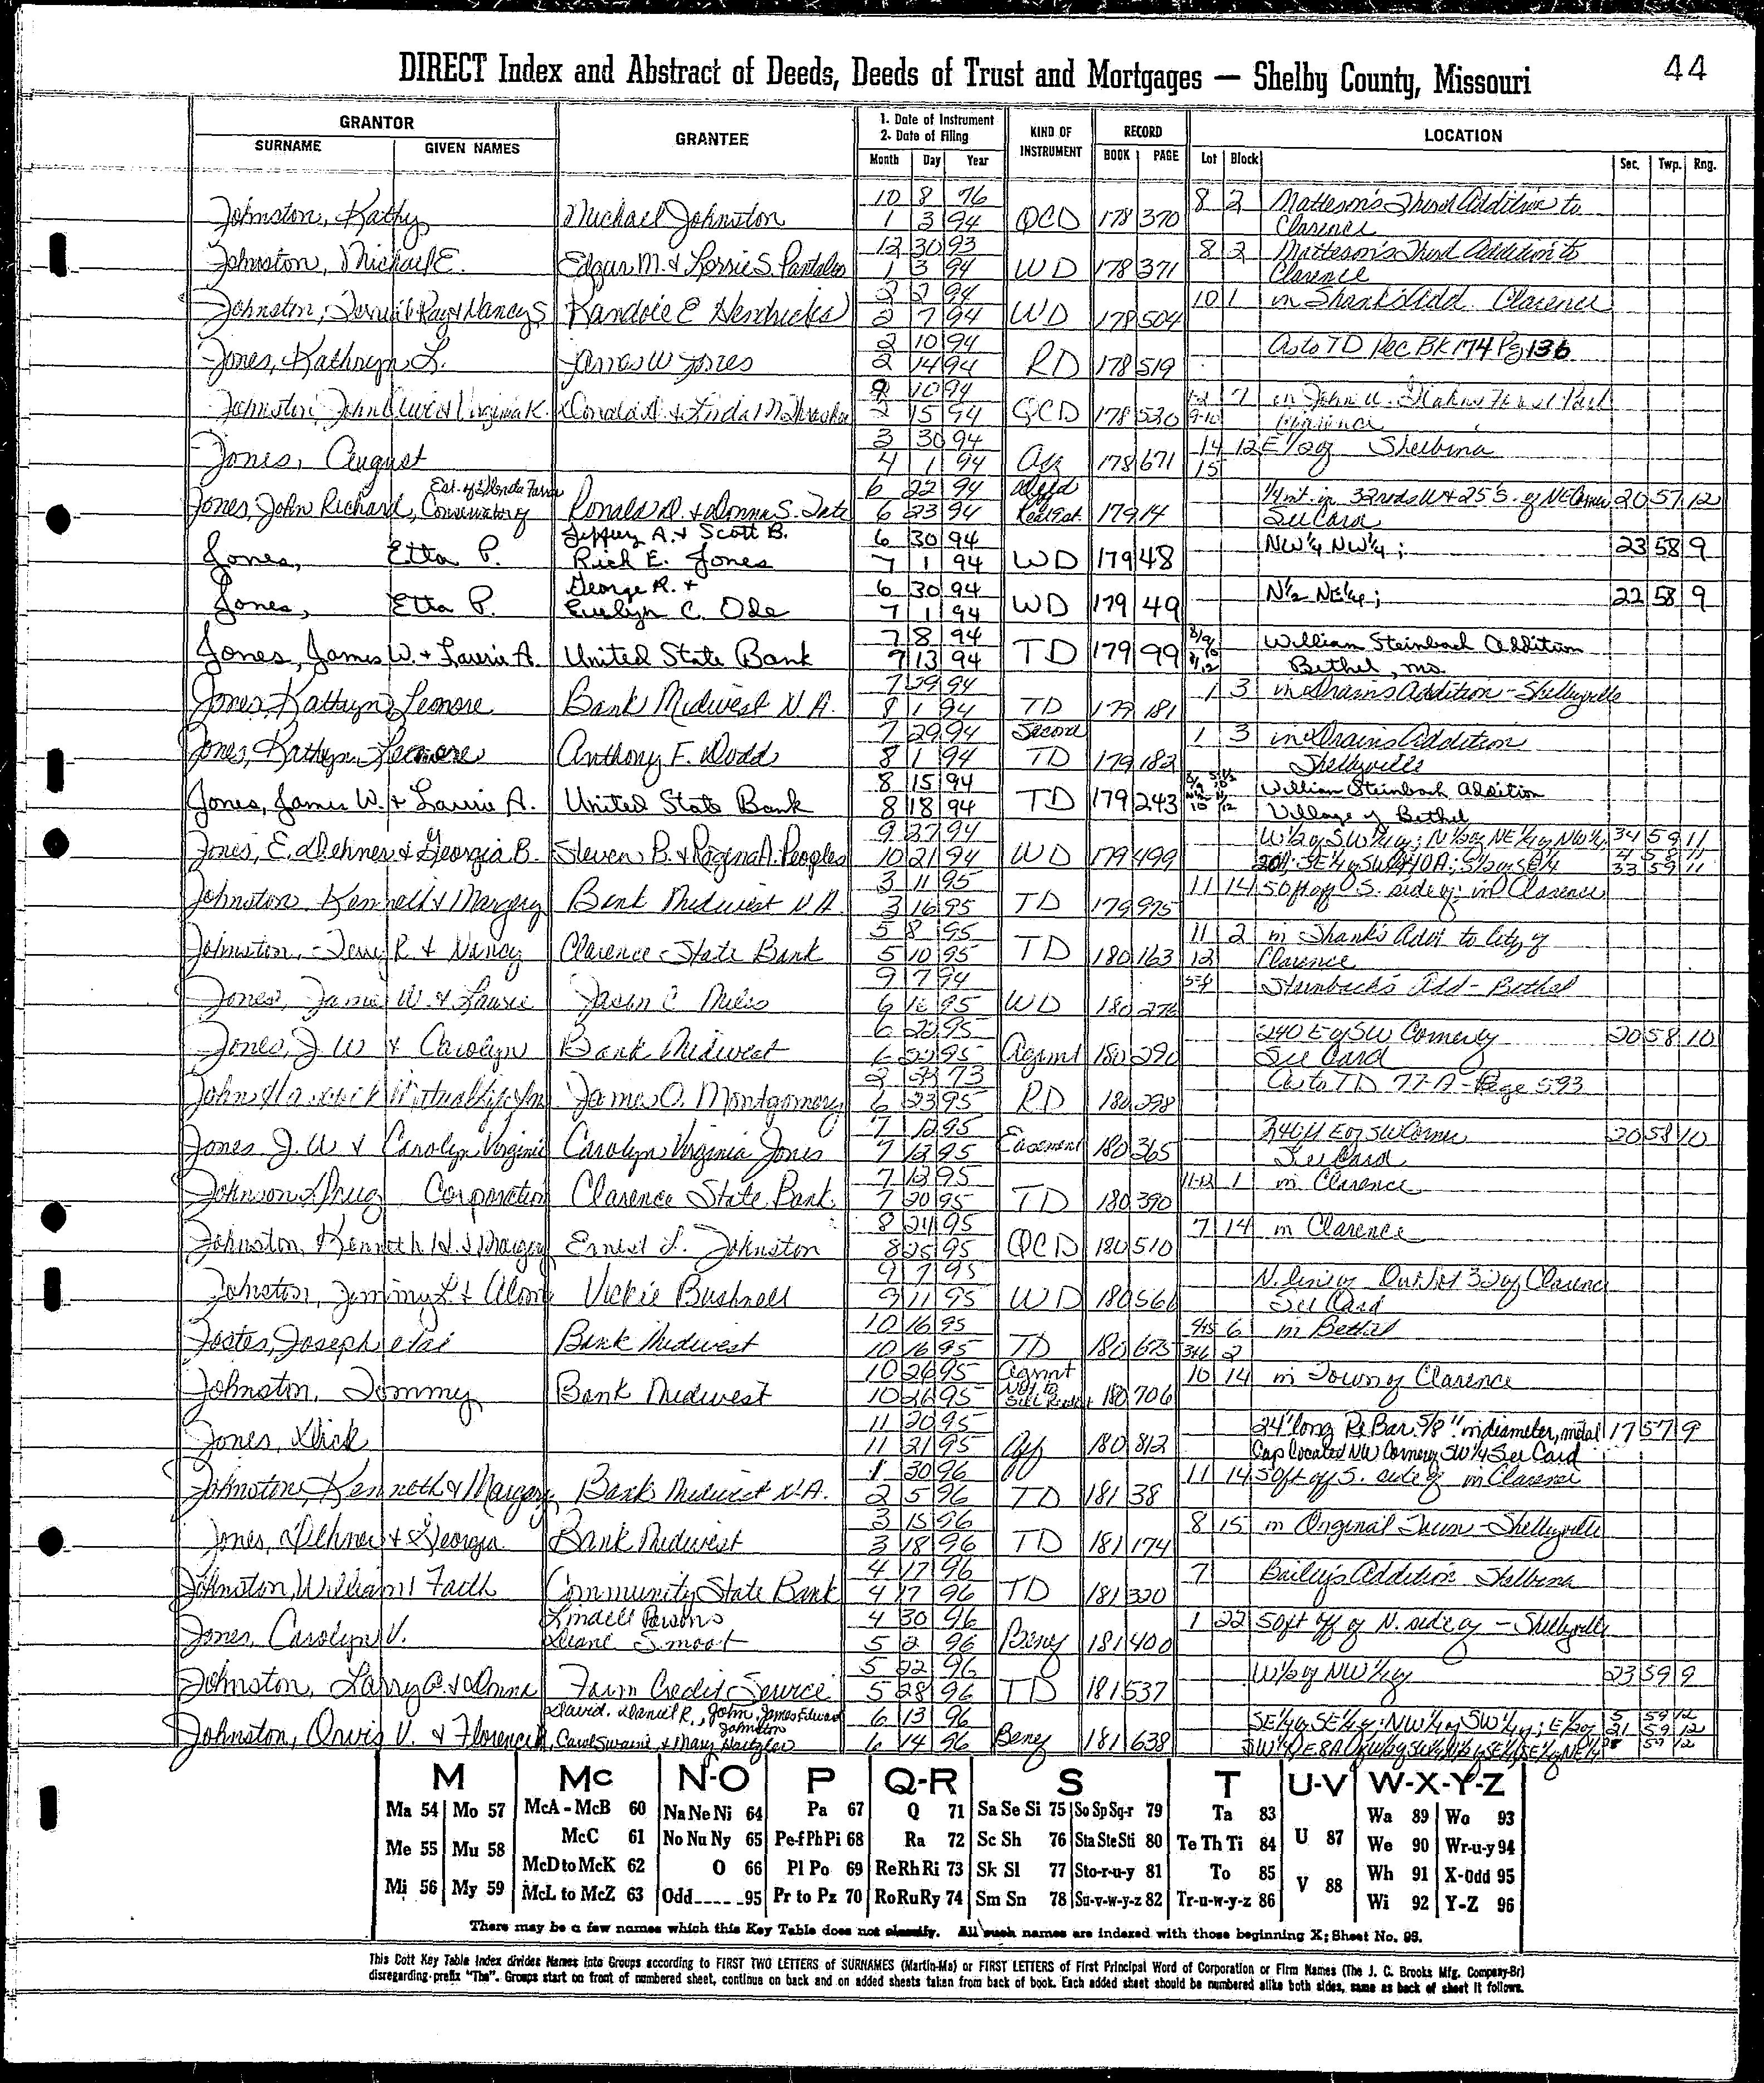 44
DIRECT Index and Abstract of Deeds, Deeds of Trust and Mortgages — Shelby County, Missouri
GRANTOR GRANTEE 1. Date of Instrument 2. Date of Filing KIND OF INSTRUMENT RECORD LOCATION
SURNAME GIVEN NAMES Month Day Year BOOK PAGE Lot Block Sec. Twp. Rng.
10 8 76 8 2 Matteson's Third Addition to
Johnston, Kathy Michael Johnston 1 3 94 QCD 178 370 Clarence
12 30 93 8 2 Matteson's Third Addition to
Johnston, Michael E. Edgar M. & Lorrie S. 1 3 94 WD 178 371 Clarence
2 2 94 10 1 in Shank's Add. Clarence
Johnston, Ray & Nancy S Kandoie E Hendricks 2 7 94 WD 178 504
2 10 94 As to TD Rec BK 174 Pg 136
Jones, Kathryn L. James W Jones 2 14 94 RD 178 519
10 94 7 in John
Johnston, John & Virginia K. Donald D. & Linda M. 2 15 94 QCD 178 530 9-10 Clarence
3 30 94 14 12 E 1/2 of Shelbina
Jones, August 4 1 94 Aff 178 671 15
Est. of 6 22 94 Deed 1/4 int. in 32 rds W & 25 S. of NE Corner 20 57 12
Jones, John Richard, Ronald D. & Donna S. Tate 6 23 94 179 14 See Card
Jeffrey A. & Scott B. 6 30 94 NW 1/4 NW 1/4; 23 58 9
Jones, Etta P. Rick E. Jones 7 1 94 WD 179 48
George R. & 6 30 94 N 1/2 NE 1/4; 22 58 9
Jones, Etta P. Evelyn C. Ode 7 1 94 WD 179 49
7 8 94 William Steinbach Addition
Jones, James W. & Laurie A. United State Bank 7 13 94 TD 179 99 Bethel, Mo.
7 29 94 1 3 in Drains Addition - Shelbyville
Jones, Kathryn Lenore Bank Midwest N.A. 8 1 94 TD 179 181
7 29 94 Second 1 3 in Drains Addition
Jones, Kathryn Lenore Anthony F. Dodd 8 1 94 TD 179 182 Shelbyville
8 15 94 William Steinbach Addition
Jones, James W. & Laurie A. United State Bank 8 18 94 TD 179 243 Village of Bethel
9 27 94 W 1/2 of SW 1/4 of; N 1/2 of NE 1/4 of NW 1/4 34 59 11
Jones, E. Dehner & Georgia B. Steven B. & Regina A. Peoples 10 21 94 WD 179 499 33 59 11
3 11 95 11 14 50 ft off S. side of; in Clarence
Johnston, Kenneth & Margery Bank Midwest N.A. 3 16 95 TD 179 975
5 8 95 11 2 in Shank's Add to City of
Johnston, Terry R. & Nancy Clarence State Bank 5 10 95 TD 180 163 12 Clarence
9 7 94 Steinback's Add - Bethel
Jones, James W. & Laurie Jason C. 6 95 WD 180 276
6 22 95 240 E of SW Corner of 20 58 10
Jones, J. W & Carolyn Bank Midwest 6 22 95 Agrmt 180 290 See Card
2 73 As to TD 77-A - Page 593
John Hancock James O. Montgomery 6 23 95 RD 180 298
7 12 95 E of SW Corner 20 58 10
Jones J. W & Carolyn Virginia Carolyn Virginia Jones 7 13 95 Easement 180 365 See Card
7 13 95 11-12 1 in Clarence
Johnson Drug Corporation Clarence State Bank 7 20 95 TD 180 390
8 24 95 7 14 in Clarence
Johnston, Kenneth H. & Margery Ernest L. Johnston 8 25 95 QCD 180 510
9 7 95 N. line of Outlot 32 of Clarence
Johnston, Jimmy L. & Vickie Bushnell 9 11 95 WD 180 566 See Card
10 16 95 4&5 6 in Bethel
Foster, Joseph etal Bank Midwest 10 16 95 TD 180 3&6 2
10 26 95 Agrmt 10 14 in Town of Clarence
Johnston, Tommy Bank Midwest 10 26 95 Not to 180 706
11 20 95 24" long Re Bar 5/8" in diameter, metal 17 57 9
Jones, Dick 11 21 95 Aff 180 812 Cap Located NW Corner of SW 1/4 See Card
1 30 96 11 14 50 ft off S. side of in Clarence
Johnston, Kenneth & Margery Bank Midwest N.A. 2 5 96 TD 181 38
3 15 96 8 15 in Original Town - Shelbyville
Jones, Dehner & Georgia Bank Midwest 3 18 96 TD 181 174
4 17 96 7 Bailey's Addition Shelbina
Johnston, William Faith Community State Bank 4 17 96 TD 181 320
Lindell Parsons 4 30 96 1 22 50 ft off of N. side of - Shelbyville
Jones, Carolyn V. Diane Smoot 5 2 96 Beny 181 400
5 22 96 W 1/2 of NW 1/4 of 23 59 9
Johnston, Larry G. & Donna Farm Credit Service 5 28 96 TD 181 537
David, Daniel R., John, James Edward Johnston 6 13 96 SE 1/4 of SE 1/4 of; NW 1/4 of SW 1/4 of; E 1/2 of 5 59 12
Johnston, Orvis V. & Florence Carol Swaine, & Mary 6 14 96 Beny 181 638 21 59 12
M Mc N-O P Q-R S T U-V W-X-Y-Z
Ma 54 Mo 57 McA - McB 60 Na Ne Ni 64 Pa 67 Q 71 Sa Se Si 75 So Sp Sq-r 79 Ta 83 U 87 Wa 89 Wo 93
Me 55 Mu 58 McC 61 No Nu Ny 65 Pe-f Ph Pi 68 Ra 72 Sc Sh 76 Sta Ste Sti 80 Te Th Ti 84 We 90 Wr-u-y 94
McD to McK 62 O 66 Pl Po 69 Re Rh Ri 73 Sk Sl 77 Sto-r-u-y 81 To 85 V 88 Wh 91 X-Odd 95
Mi 56 My 59 McL to McZ 63 Odd 95 Pr to Pz 70 Ro Ru Ry 74 Sm Sn 78 Su-v-w-y-z 82 Tr-u-w-y-z 86 Wi 92 Y-Z 96
There may be a few names which this Key Table does not classify. All such names are indexed with those beginning X; Sheet No. 95.
This Cott Key Table Index divides Names into Groups according to FIRST TWO LETTERS of SURNAMES (Martin-Ma) or FIRST LETTERS of First Principal Word of Corporation or Firm Names (The J. C. Brooks Mfg. Company-Br)
disregarding prefix "The". Groups start on front of numbered sheet, continue on back and on added sheets taken from back of book. Each added sheet should be numbered alike both sides, same as back of sheet it follows.